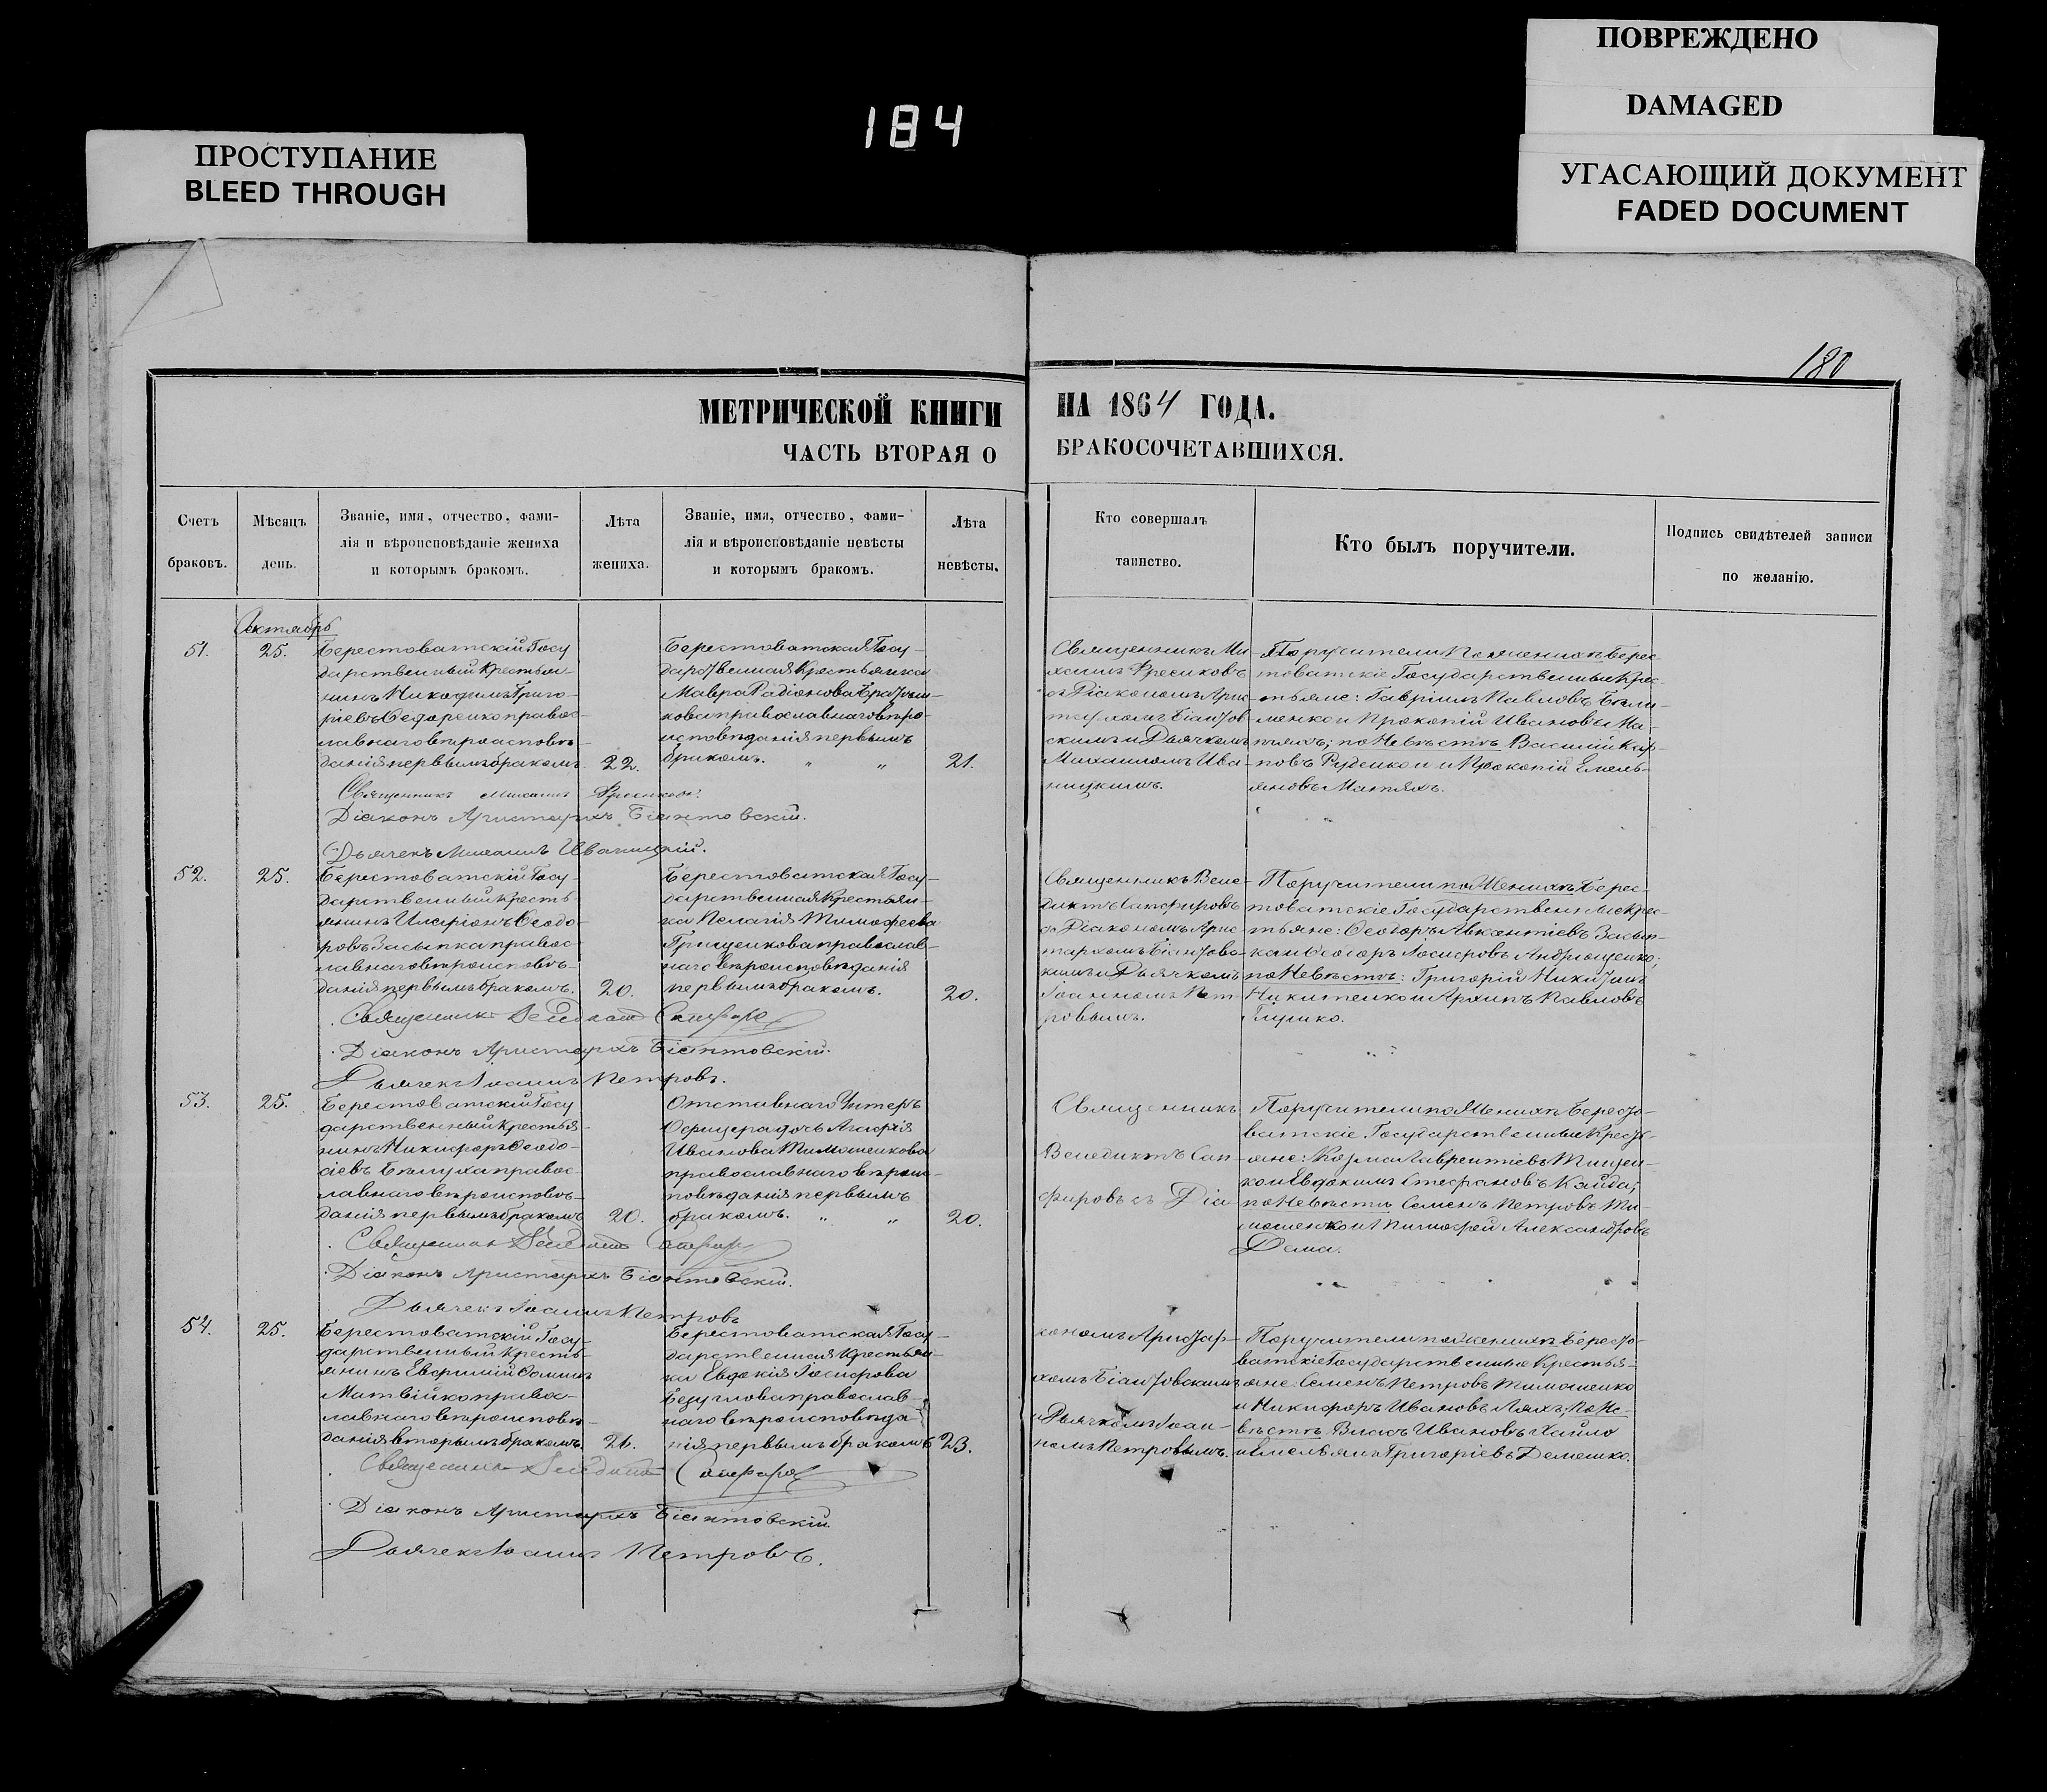 ПОВРЕЖДЕНО
DAMAGED
184
ПРОСТУПАНИЕ
BLEED THROUGH
УГАСАЮЩИЙ ДОКУМЕНТ
FADED DOCUMENT
180
МЕТРИЧЕСКОЙ КНИГИ НА 1864 ГОДА.
ЧАСТЬ ВТОРАЯ О БРАКОСОЧЕТАВШИХСЯ.
Счетъ браковъ.
Мѣсяцъ день.
Званіе, имя, отчество, фами-
лія и вѣроисповѣданіе жениха
и которымъ бракомъ.
Лѣта жениха.
Званіе, имя, отчество, фами-
лія и вѣроисповѣданіе невѣсты
и которымъ бракомъ.
Лѣта невѣсты.
Кто совершалъ
таинство.
Кто былъ поручители.
Подпись свидѣтелей записи
по желанію.
Октябрь
51.
25.
Берестоватскій Госу
дарственный крестья-
нинъ Никодимъ Григо-
ріевъ Ѳедоренко правос-
лавнаго вѣроисповѣ-
данія первымъ бракомъ.
22.
Берестоватская Госу-
дарственная Крестьянка
Мавра Радіонова
кова православнаго вѣро-
исповѣданія первымъ
бракомъ. „ „
21.
Священникъ Ми-
хаилъ Фесиковъ
съ Діакономъ Арис-
тархомъ Біантов-
скимъ и Дьячкомъ
Михаиломъ Ива-
ницкимъ.
Поручители по женихѣ Берес-
товатскіе Государственные Крес-
тьяне: Гавріилъ Павловъ
менко и Прокопій Ивановъ Ма-
тяхъ; по Невѣстѣ Василій Кар-
повъ Руденко и Прокопій Емель-
яновъ Матяхъ.
Священникъ Михаилъ Фесиковъ.
Діаконъ Аристархъ Біантовскій.
Дьячекъ Михаилъ Иваницкій.
52.
25.
Берестоватскій Госу-
дарственный Кресть-
янинъ Иларіонъ Ѳеодо-
ровъ Засыпка правос-
лавнаго вѣроисповѣ-
данія первымъ бракомъ.
20.
Берестоватская Госу-
дарственная Крестьян-
ка Пелагія Тимофеева
Грищенкова православ-
наго вѣроисповѣданія
первымъ бракомъ.
20.
Священникъ Вене-
диктъ Сапфировъ
съ Діакономъ Арис-
тархомъ Біантовс-
кимъ и Дьячкомъ
Іоанномъ Пет-
ровымъ.
Поручители по Женихѣ Берес-
товатскіе Государственные Крес-
тьяне: Ѳеодоръ Авксентіевъ Засып-
ка и Ѳеодоръ Іосифовъ Андрющенко;
по Невѣстѣ: Григорій Никитинъ
Никитенко и Архипъ Павловъ
Священникъ Венедиктъ Сапфировъ
Діаконъ Аристархъ Біантовскій.
Дьячекъ Іоаннъ Петровъ.
53.
25.
Берестоватскій Госу
дарственный Крестья-
нинъ Никифоръ Ѳеодо-
сіевъ Бѣлуха правос-
лавнаго вѣроисповѣ-
данія первымъ бракомъ
20.
Отставнаго Унтеръ
Офицера дочь Агафія
Иванова Тимошенкова
православнаго вѣроис-
повѣданія первымъ
бракомъ. „ „
20.
Священникъ
Венедиктъ Сап-
фировъ съ Діа-
Поручители по Женихѣ Бересто-
ватскіе Государственные Кресть-
яне: Козма Лаврентіевъ Тищен-
ко и Евдокимъ Стефановъ Кайда;
по Невѣстѣ Семенъ Петровъ Ти-
мошенко и Тимофей Александровъ
Дема.
Священникъ Венедиктъ Сапфировъ
Діаконъ Аристархъ Біантовскій.
Дьячекъ Іоаннъ Петровъ
54.
25.
Берестоватскій Госу-
дарственный Кресть-
янинъ Евфимій Фоминъ
Матвійко правос-
лавнаго вѣроисповѣ-
данія вторымъ бракомъ.
26.
Берестоватская Госу-
дарственная Крестьян-
ка Евдокія Іосифова
Бедуглова православ-
наго вѣроисповѣда-
нія первымъ бракомъ
23.
кономъ Аристар-
хомъ Біантовскимъ
и Дьячкомъ Іоан-
номъ Петровымъ.
Поручители по женихѣ Бересто-
ватскіе Государственные Крестья-
яне: Семенъ Петровъ Тимошенко
и Никифоръ Ивановъ Ляхъ; по Не-
вѣстѣ Власъ Ивановъ Хайло
и Емельянъ Григоріевъ Демешко.
Священникъ Венедиктъ Сапфировъ
Діаконъ Аристархъ Біантовскій.
Дьячекъ Іоаннъ Петровъ.